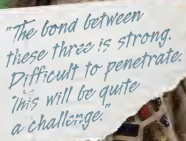 "The bond between
these three is strong.
Difficult to penetrate.
This will be quite
a challenge."